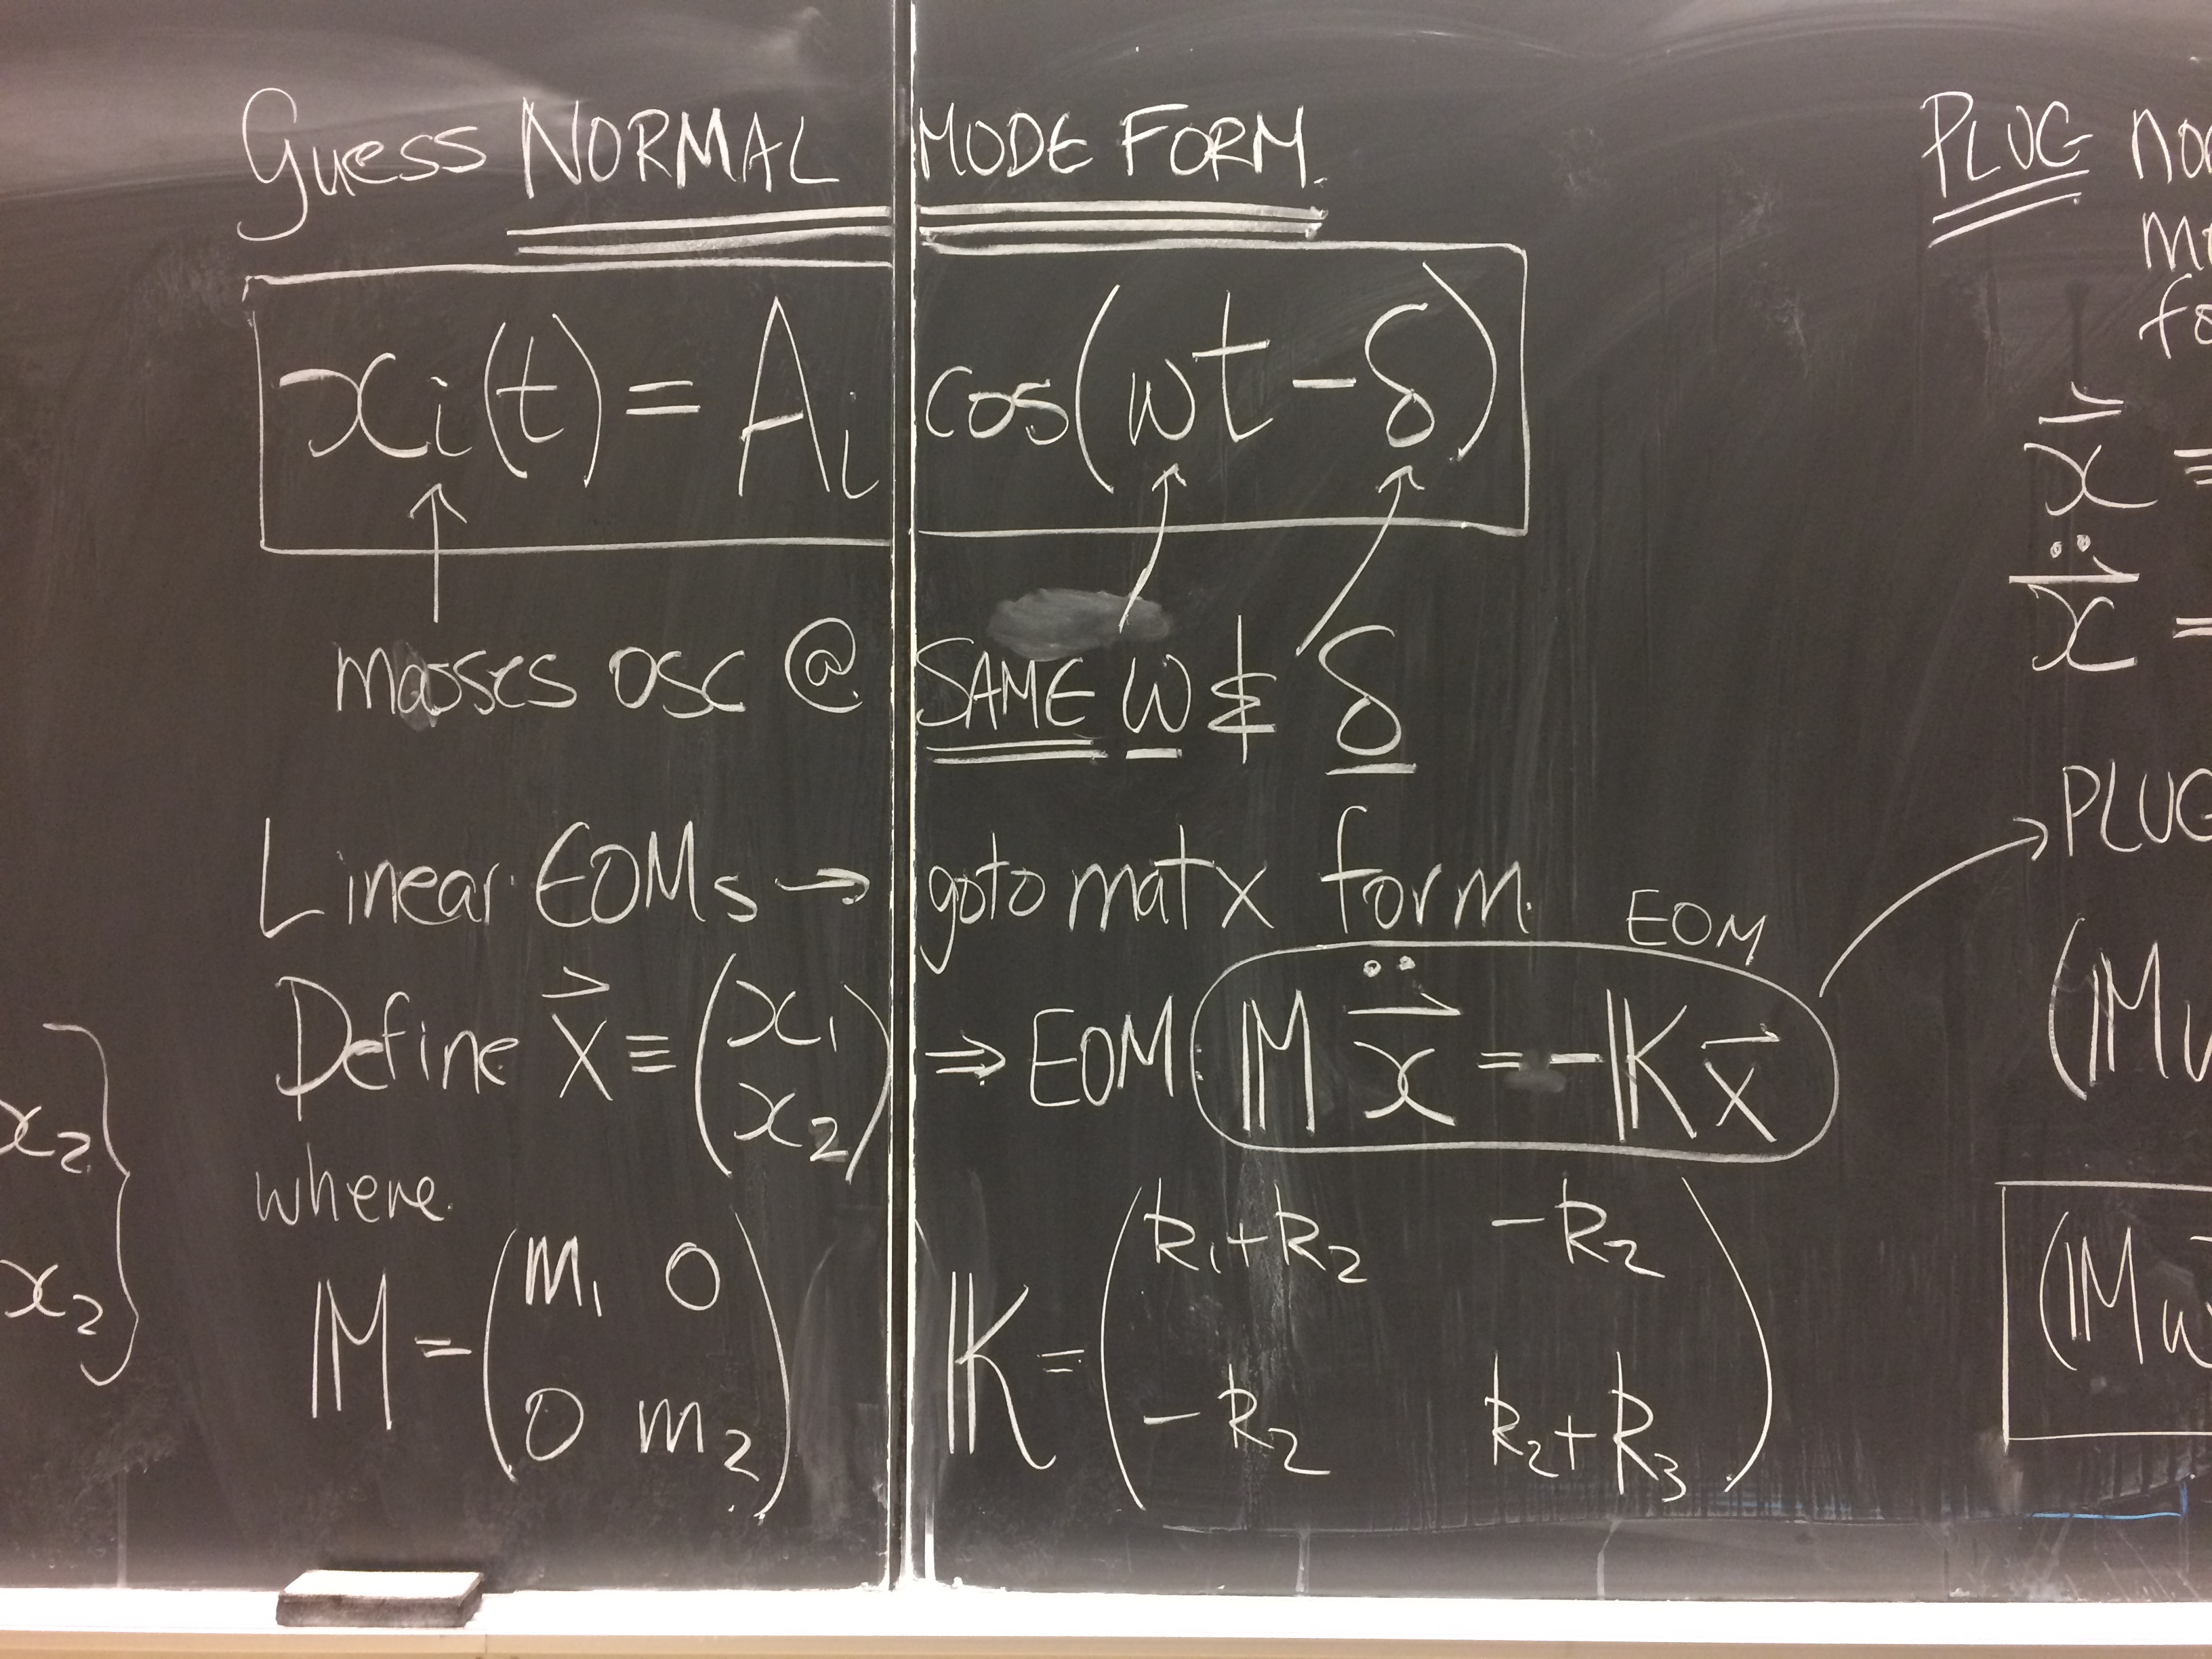 Guess NORMAL MODE FORM.
xᵢ(t) = Aᵢ cos(ωt − δ)
masses osc @ SAME ω & δ
Linear EOMs → goto matx form.
EOM
Define x⃗ ≡ (x₁ x₂) ⇒ EOM: 𝕄 ẍ⃗ = −𝕂 x⃗
where
𝕄 = (m₁ 0
0 m₂)
𝕂 = (k₁+k₂ −k₂
−k₂ k₂+k₃)
x₂
x₂ }
PLUG
x⃗ ≡
ẍ⃗ =
→ PLUG
(𝕄ω
(𝕄ω